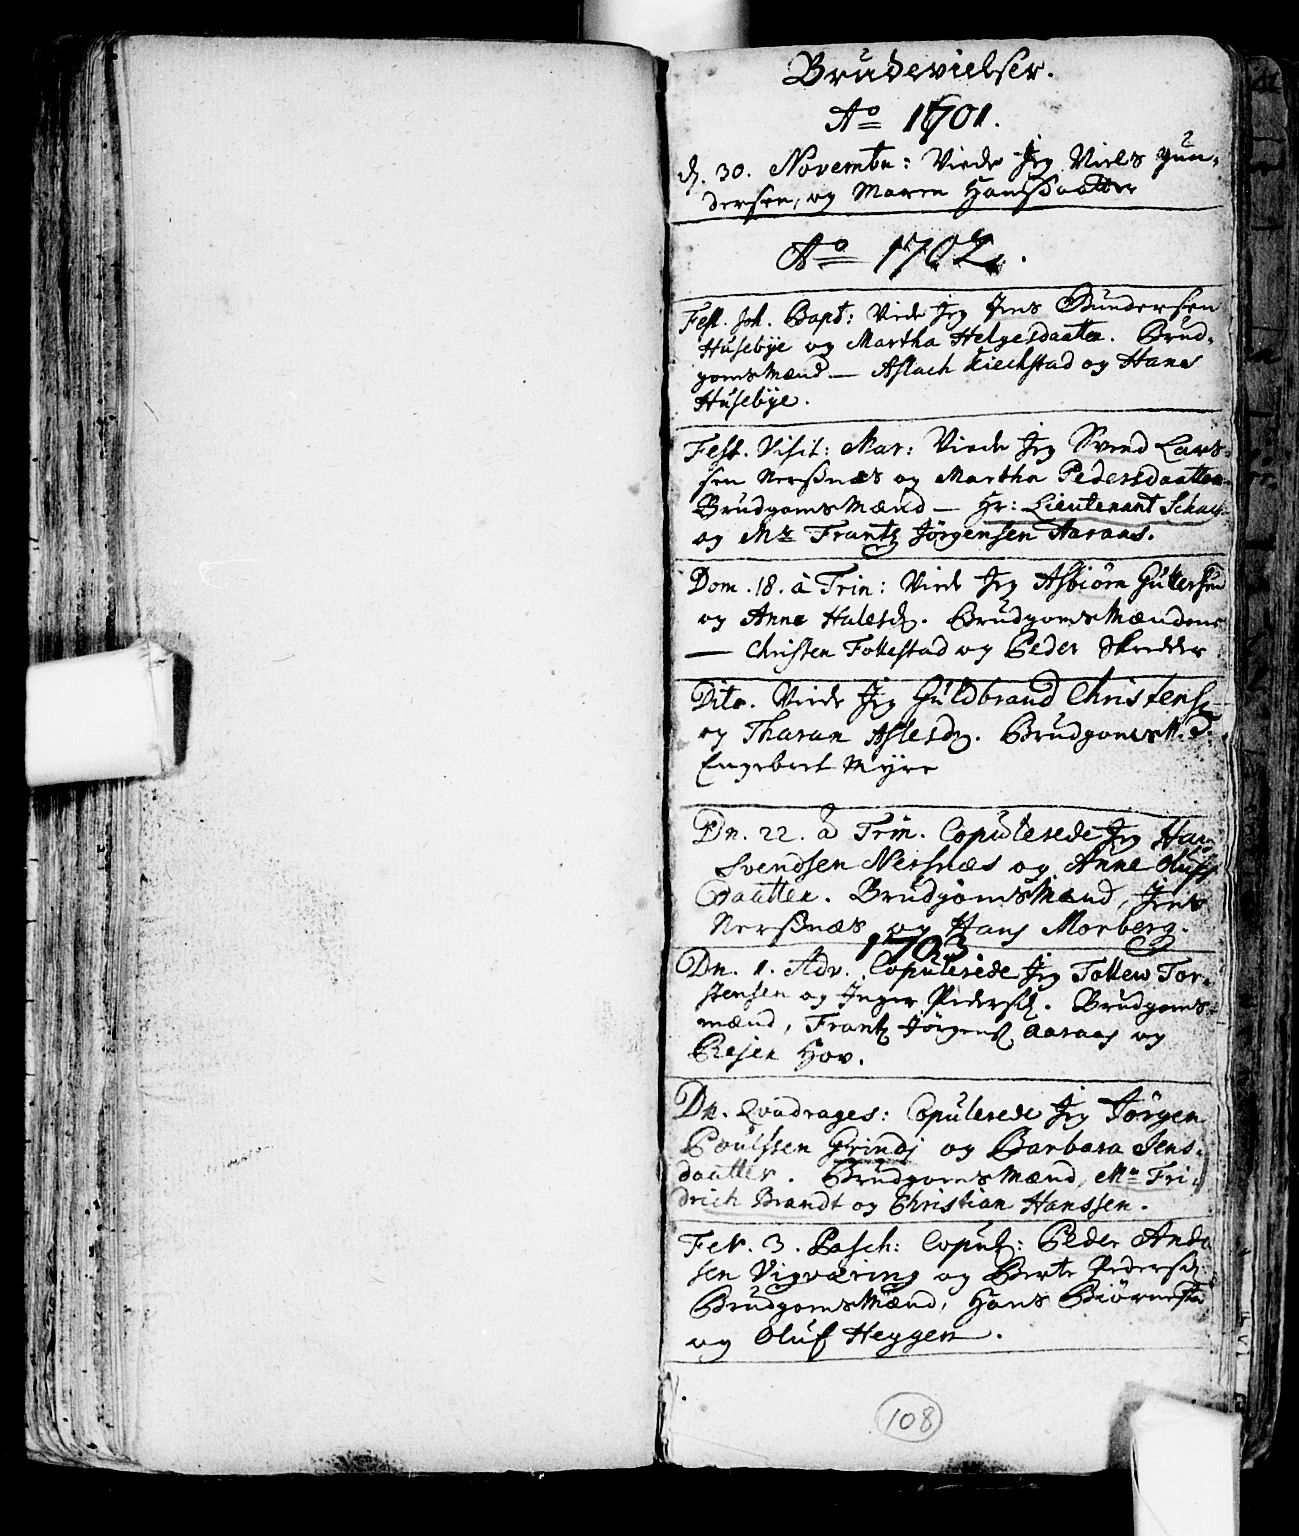 Brudevielser.
Ao 1701.
d. 30. Novembr: Viede Jeg Niels Gun-
dersen, og Maren Hansdaatter
Ao 1702.
Fest. Joh. Bapt: Viede Jeg Jens Gundersen
Husebÿe og Martha Helgesdaatter. Brud-
gomsMænd — Aslach Kiechstad og Hans
Husebÿe.
Fest. Visit: Mar: Viede Jeg Svend Lars-
sen Nersnæs og Martha Pedersdaatter
BrudgomsMænd — Hr: Lieutenant
og Mr Frantz Jörgensen Aaraas.
Dom. 18. à Trin: Viede Jeg Asbiörn Guttersen
og Anne Halesd. BrudgomsMændene
— Christen Follestad og Peder Skredder
Dito. Viede Jeg Guldbrand Christens.
og Tharan Aslesd. Brudgoms M.
Engebret Myre
Dn. 22. à Trin. Copulerede Jeg Hans
Svendsen Nersnæs og Anne Olufs
Daatter. BrudgomsMænd, Jens
Nersnæs og Hans Morberg.
1703
Dn. 1. Adv. Copulerede Jeg Tollew Tor-
stensen og Inger Pedersd. Brudgoms-
mænd, Frantz Jörgens. Aaraas og
Resen Hov.
Dn. Qvadrages: Copulerede Jeg Jörgen
Poulssen Grindj og Barbara Jens-
daatter. BrudgomsMænd, Mr Fri-
drich Brandt og Christian Hanssen.
Fer. 3. Pasch: Copul: Peder Ands
sen Vigværing og Berte Pedersd:
BrudgomsMænd, Hans Biörnesta
og Oluf Heggen.
108